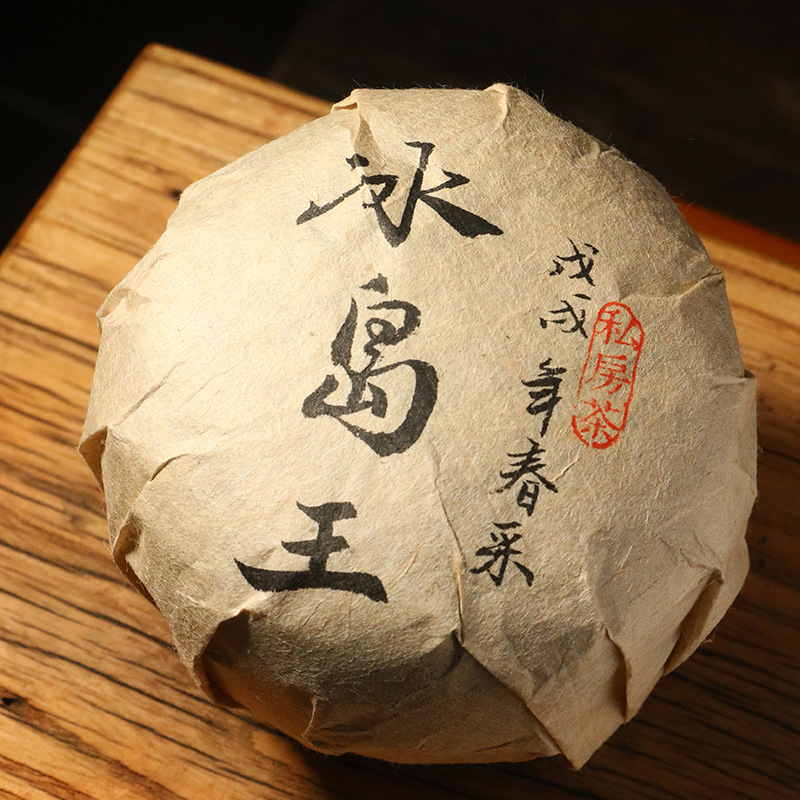 冰岛王
戊戌年春采
私房茶